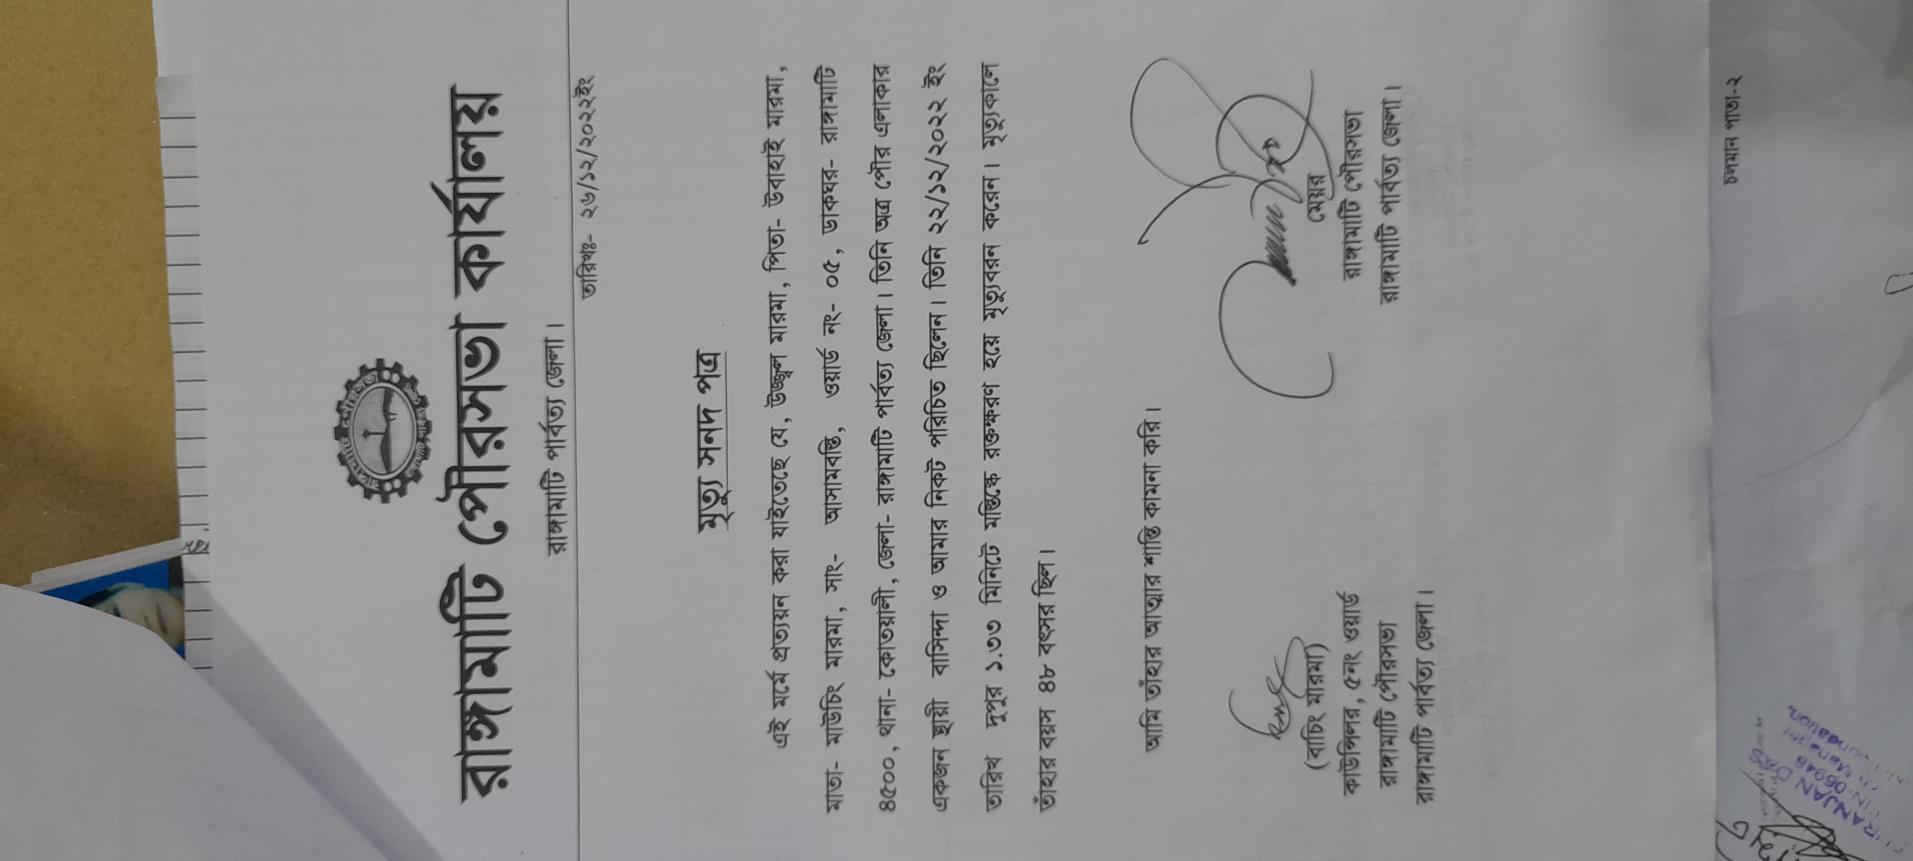 রাঙ্গামাটি পৌরসভা কার্যালয়
রাঙ্গামাটি পার্বত্য জেলা।
তারিখঃ- ২৬/১২/২০২২ইং
মৃত্যু সনদ পত্র
এই মর্মে প্রত্যয়ন করা যাইতেছে যে, উজ্জ্বল মারমা, পিতা- উবাহাই মারমা,
মাতা- মাউচিং মারমা, সাং- আসামবস্তি, ওয়ার্ড নং- ০৫, ডাকঘর- রাঙ্গামাটি
৪৫০০, থানা- কোতয়ালী, জেলা- রাঙ্গামাটি পার্বত্য জেলা। তিনি অত্র পৌর এলাকার
একজন স্থায়ী বাসিন্দা ও আমার নিকট পরিচিত ছিলেন। তিনি ২২/১২/২০২২ ইং
তারিখ দুপুর ১.৩৩ মিনিটে মস্তিষ্কে রক্তক্ষরণ হয়ে মৃত্যুবরন করেন। মৃত্যুকালে
তাঁহার বয়স ৪৮ বৎসর ছিল।
আমি তাঁহার আত্মার শান্তি কামনা করি।
(বাচিং মারমা)
কাউন্সিলর, ৫নং ওয়ার্ড
রাঙ্গামাটি পৌরসভা
রাঙ্গামাটি পার্বত্য জেলা।
মেয়র
রাঙ্গামাটি পৌরসভা
রাঙ্গামাটি পার্বত্য জেলা।
চলমান পাতা-২
RANJAN DAS
PIN-06946
Manager